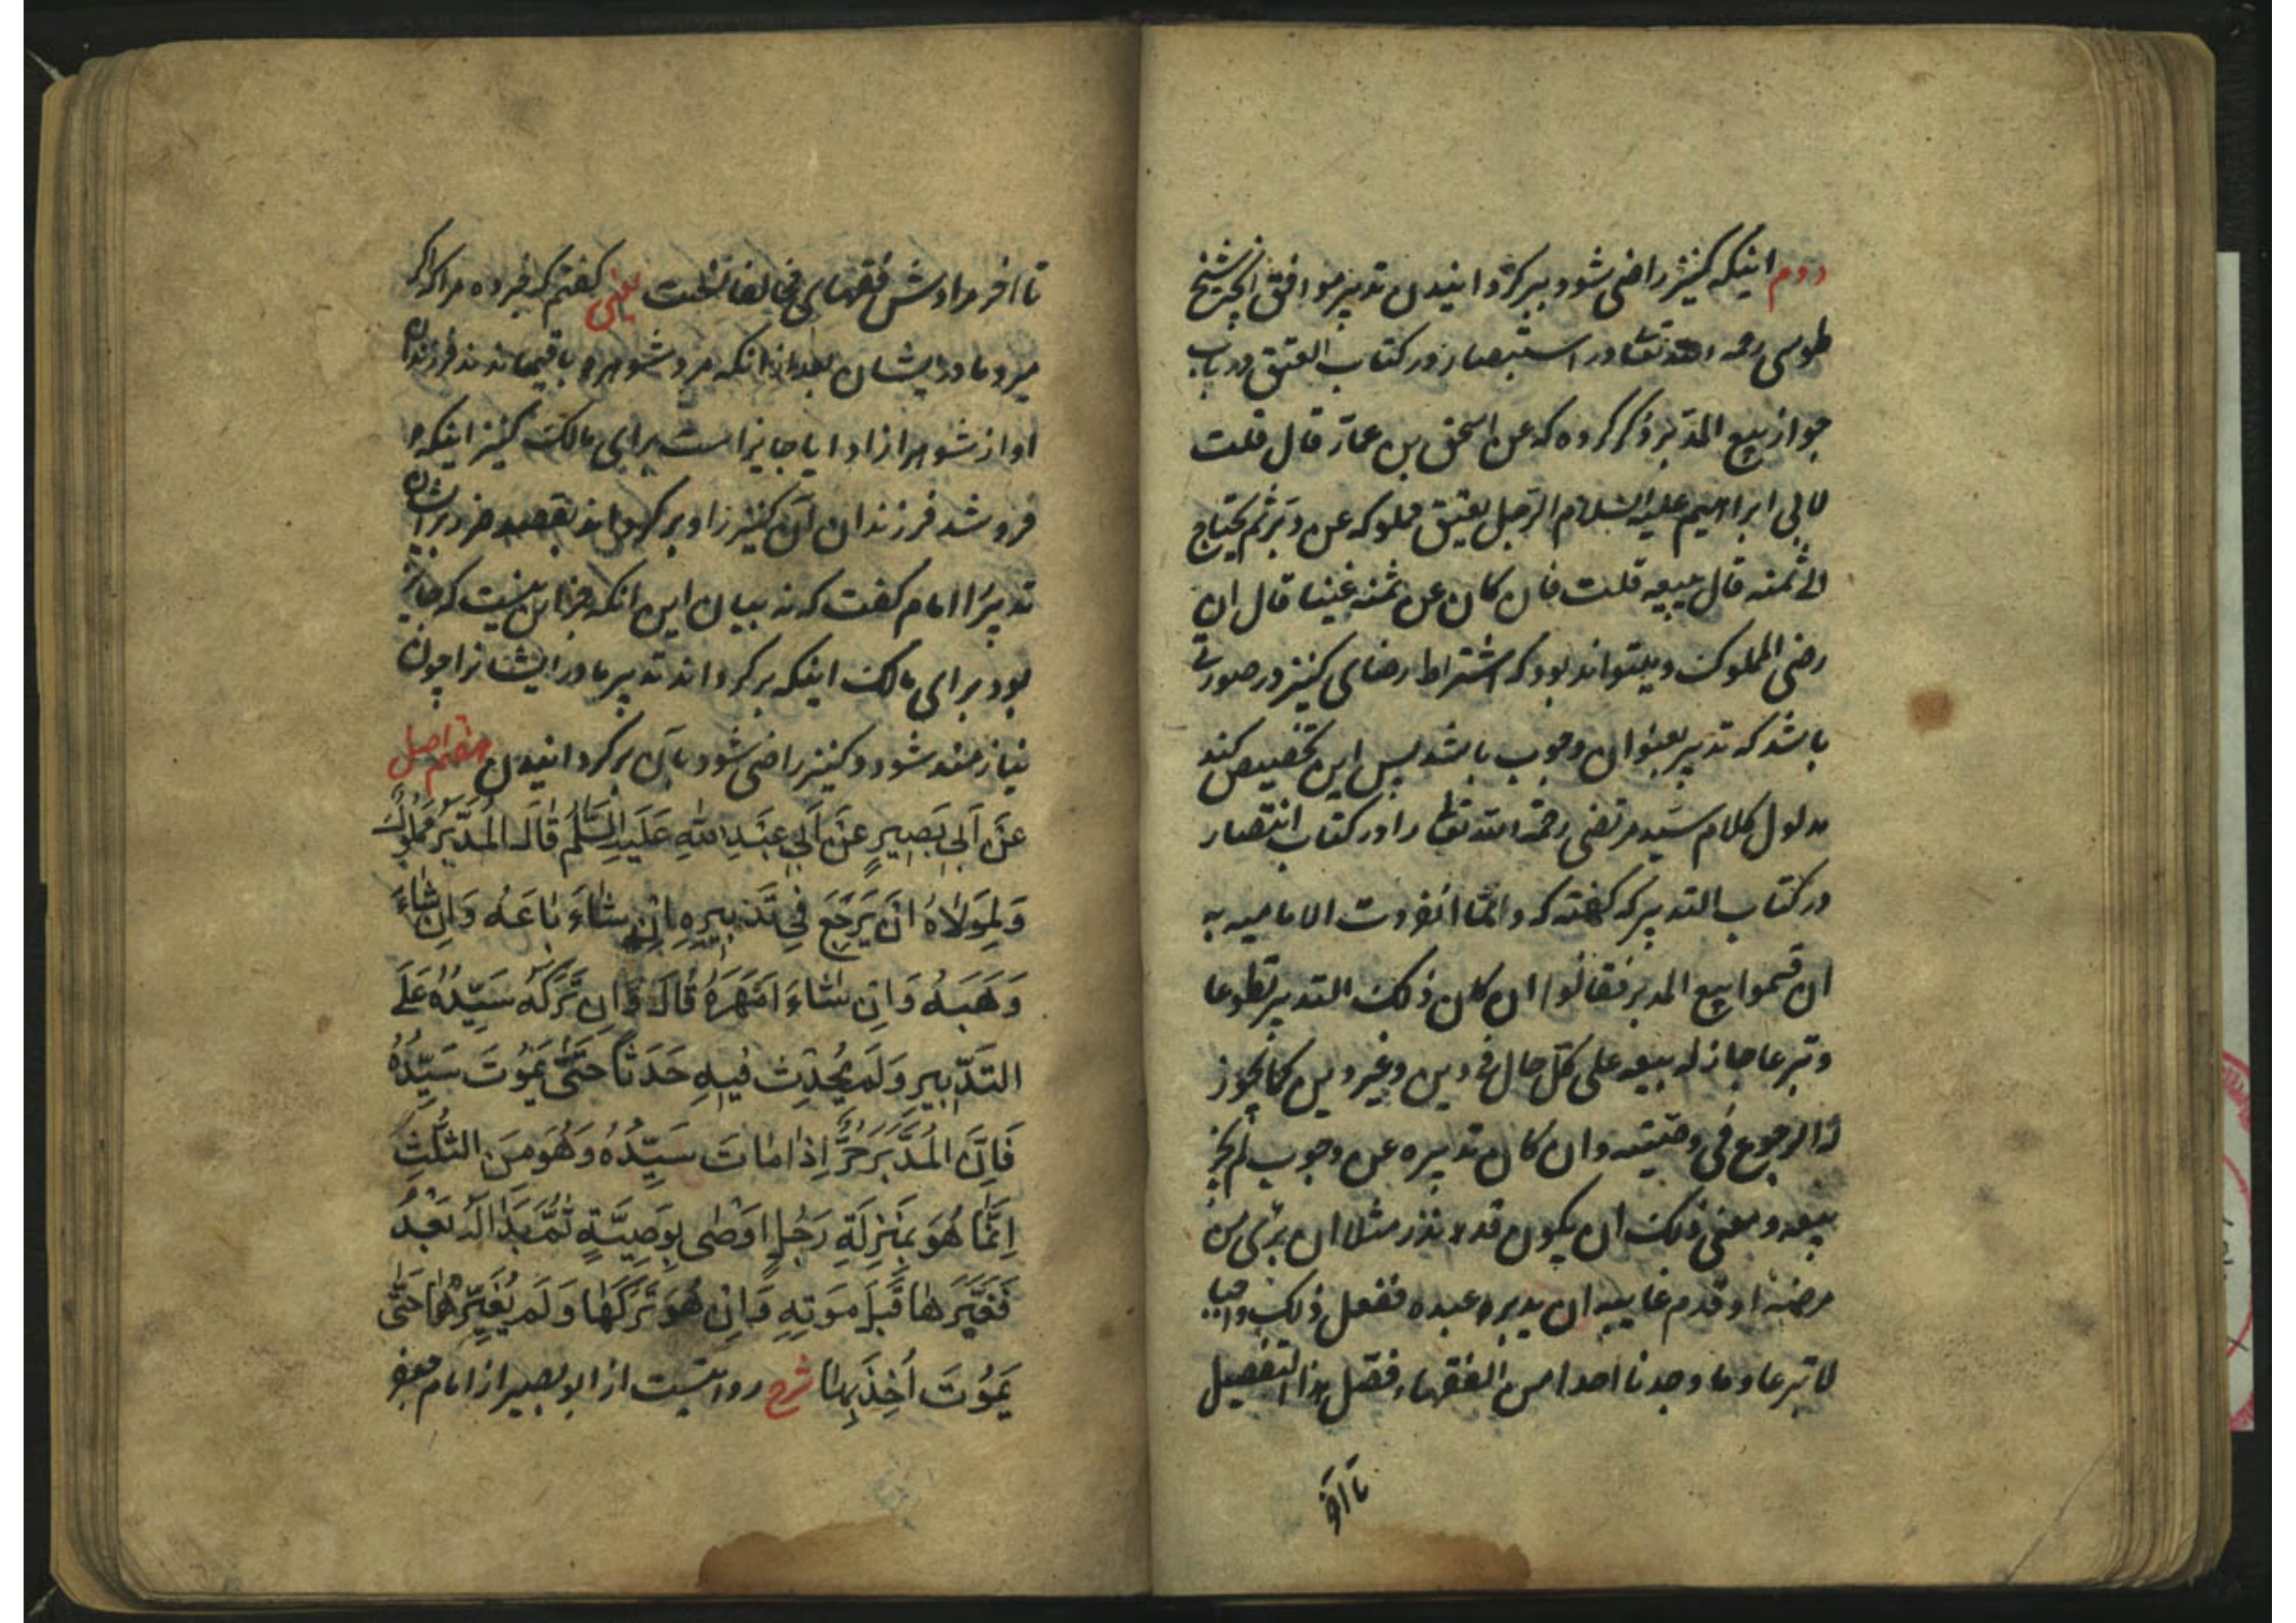 دوم اینکه کنیز راضی شود ببرکردانیدن تدبیر موافق انچه شیخ
طوسی رحمه الله تعا در استبصار در کتاب العتق در باب
جواز بیع المدبر ذکر کرده که عن اسحق بن عمار قال قلت
لابی ابراهیم علیه السلام الرجل یعتق مملوکه عن دبر ثم یحتاج
الی ثمنه قال یبیعه قلت فان کان عن ثمنه غنیا قال ان
رضی المملوک ومیتواند بود که اشتراط رضای کنیز در صورتی
باشد که تدبیر بعنوان وجوب باشد پس این تخصیص کند
مدلول کلام سید مرتضی رحمه الله تعا را در کتاب انتصار
در کتاب التدبیر که کفته که وانما انفردت الامامیه به
ان قسموا بیع المدبر فقالوا ان کان ذلک التدبیر تطوعا
وتبرعا جاز له بیعه علی کل حال فی دین وغیر دین کما یجوز
له الرجوع فی وصیته وان کان تدبیره عن وجوب لم یجز
بیعه ومعنی ذلک ان یکون قد نذر مثلا ان برئ من
مرضه او قدم غایبه ان یدبر عبده ففعل ذلک واجبا
لا تبرعا وما وجدنا احدا من الفقهاء فصل هذا التفصیل
تا آخر
تا آخر مرادش فقهای مخالفانست یعنی کفتم که خبر ده مرا که اکر
میرد مادر ایشان بعد از انکه مرد شوهر و باقیماندند فرزندان
او از شوهر ازاد ایا جایز است برای مالک کنیز اینکه
فروشد فرزندان آن کنیز را و برکرداند بقصد ضرر بر ایشان
تدبیر را امام کفت که نه بیان این انکه جز این نیست که جایز
بود برای مالک اینکه برکرداند تدبیر مادر ایشانرا چون
نیازمند شود و کنیز راضی شود بآن برکردانیدن هفتم اصل
عَن اَبِی بَصِیرٍ عَن اَبِی عَبدِ اللهِ عَلَیهِ السَّلَم قَالَ المُدَبَّرُ مَملُوکٌ
وَلِمَولَاهُ اَن یَرجِعَ فِی تَدبِیرِهِ اِن شَاءَ بَاعَهُ وَاِن شَاءَ
وَهَبَهُ وَاِن شَاءَ اَمهَرَهُ قَالَ وَاِن تَرَکَهُ سَیِّدُهُ عَلَی
التَدبِیرِ وَلَم یُحدِث فِیهِ حَدَثاً حَتَّی یَمُوتَ سَیِّدُهُ
فَاِنَّ المُدَبَّرَ حُرٌّ اِذَا مَاتَ سَیِّدُهُ وَهُوَ مِنَ الثُّلُثِ
اِنَّمَا هُوَ بِمَنزِلَةِ رَجُلٍ اَوصَی بِوَصِیَّةٍ ثُمَّ بَدَا لَهُ بَعدُ
فَغَیَّرَهَا قَبلَ مَوتِهِ وَاِن هُوَ تَرَکَهَا وَلَم یُغَیِّرهَا حَتَّی
یَمُوتَ اُخِذَ بِهَا شرح روایتست از ابو بصیر از امام جعفر